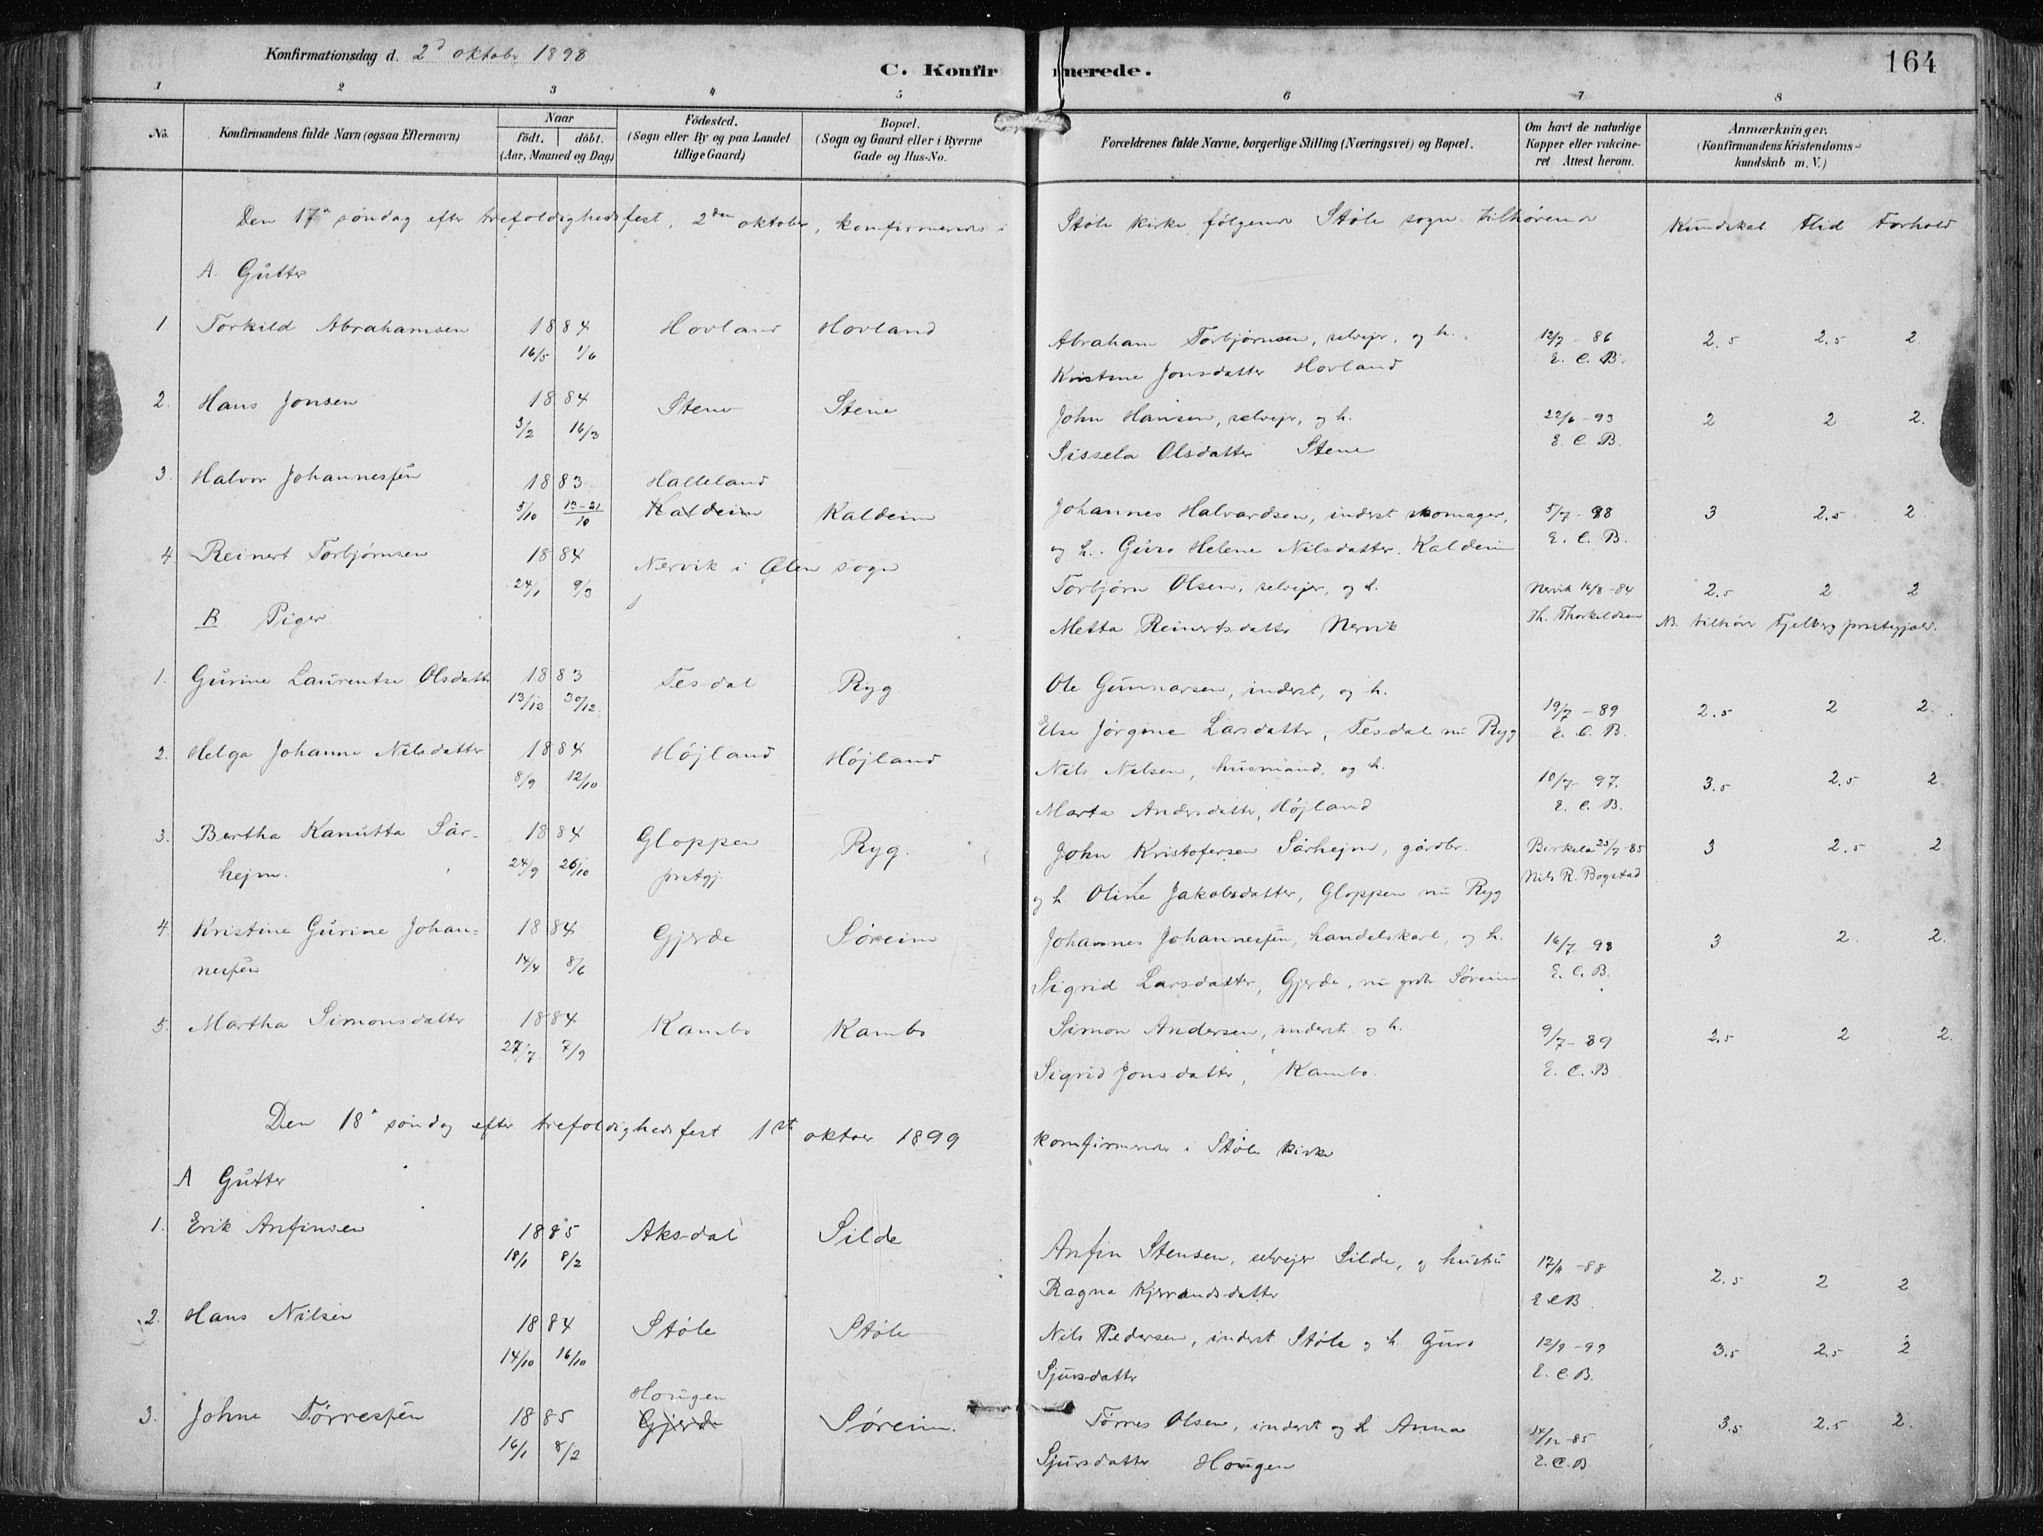 Konfirmationsdag d. 2d oktober 1898
C. Konfirmerede.
164
1 2 3 4 5 6 7 8
No. Konfirmandens fulde Navn (ogsaa Efternavn) Naar födt. döbt. (Aar, Maaned og Dag) Födested. (Sogn eller By og paa Landet tillige Gaard) Bopæl. (Sogn og Gaard eller i Byerne Gade og Hus-No. Forældrenes fulde Navne, borgerlige Stilling (Næringsvei) og Bopæl. Om havt de naturlige Kopper eller vakcineret Attest herom. Anmærkninger. (Konfirmandens Kristendomskundskab m. V.)
Den 17de søndag efter trefoldighedsfest, 2den oktober, komfirmerede i Støle kirke følgende Støle sogn tilhørende Kundskab Flid Forhold
A. Gutter
1. Torkild Abrahamsen 1884 Hovland Hovland Abraham Torbjørnsen, selvejr, og h. 12/7 - 86 2.5 2.5 2
16/5 1/6 Kristine Jonsdatter Hovland E. C. B.
2. Hans Jonsen 1884 Stene Stene John Hansen, selvejr, og h. 22/6 - 93 2 2 2.
3/2 16/3 Sissela Olsdatter Stene E. C. B.
3. Halvor Johannessen 1883 Halleland
5/10 13-21/10 Kaldeim Kaldeim Johannes Halvardsen, inderst skomager, 5/7 - 88 3 2.5 2
og h. Guro Helene Nilsdatter Kaldeim E. C. B.
4 Reinert Torbjørnsen 1884 Nervik i Ølen sogn Torbjørn Olsen, selvejer, og h. Nervik 16/8 - 84 2.5 2 2
24/1 9/3 Metta Reinertsdatter Nervik Th. Thorkildsen NB. tilhører Fjelberg prestegjæld.
B. Piger
1. Gurine Laurentse Olsdatter 1883 Tesdal Ryg Ole Gunnarsen, inderst, og h. 19/7 - 89 2.5 2 2.
13/12 30/12. Else Jørgine Larsdatter, Tesdal nu Ryg E. C. B.
2. Helga Johanne Nilsdatter 1884 Højland Højland Nils Nilsen, husmand, og h. 10/7 - 97. 3.5 2.5 2.
8/9 12/10 Marta Andersdatter, Højland E. C. B.
3. Bertha Kanutta Sår- 1884 Gloppen Ryg. John Kristofersen Sårhejm, gårdbr. Birkelo 25/7-85 3 2.5 2
hejm. 24/9 26/10 prstgj. og h. Oline Jakobsdatter, Gloppen nu Ryg Nils R. Bogstad
4. Kristine Gurine Johan- 1884 Gjerde Søreim Johannes Johannessen, handelskarl, og h. 16/7 - 98 3 2. 2.
nessen 14/4 8/6 Sigrid Larsdatter, Gjerde, nu grdb. Søreim E. C. B.
5. Martha Simonsdatter 1884 Kambo Kambo Simon Andersen, inderst. og h. 9/7 - 89 2.5 2 2.
27/7 7/9 Sigrid Jonsdatter, Kambo. E. C. B
Den 18de søndag efter trefoldighedsfest 1ste oktoer 1899 komfirmerede i Støle kirke
A Gutter
1. Erik Anfinsen 1885 Aksdal Silde Anfin Stensen, selvejer Silde, og hustru 17/11 - 88 2.5 2 2
18/1 8/2 Ragna Kjerrandsdatter E C B.
2. Hans Nilsen 1884 Støle Støle Nils Pedersen, inderst Støle og h Guro 12/9 - 99 3.5 2.5 2
14/10 16/10 Sjursdatter E. C. B.
Hougen
3. Johne Tørressen 1885 Gjerde Søreim. Tørres Olsen, inderst og h Anna 14/12 - 85 3.5 2.5 2.
16/1 8/2 Sjursdatter Hougen E. C. B